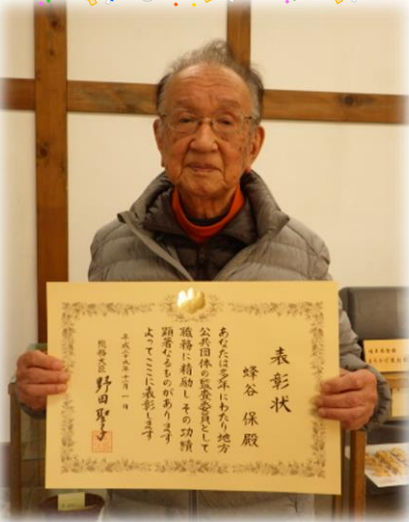 表彰状
蜂谷 保 殿
あなたは多年にわたり地方
公共団体の監査委員として
職務に精励しその功績
顕著なるものがあります
よってここに表彰します
総務大臣 野田聖子